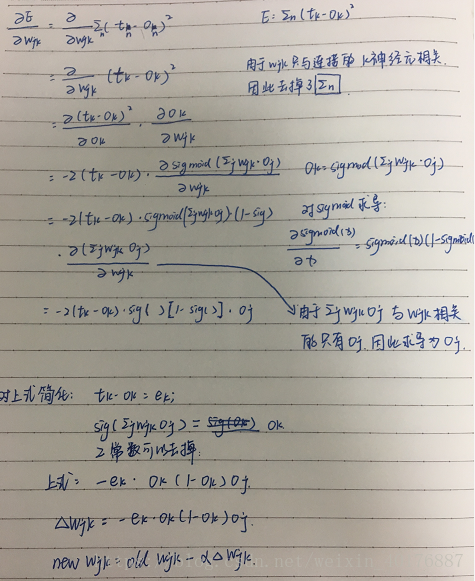 ∂E/∂wjk = ∂/∂wjk Σn(tn-On)² E: Σn(tk-Ok)²
= ∂/∂wjk (tk-Ok)² 由于wjk只与连接的k神经元相关.
因此去掉了Σn
= ∂(tk-Ok)²/∂Ok · ∂Ok/∂wjk
= -2(tk-Ok) · ∂sigmoid(Σjwjk·Oj)/∂wjk Ok=sigmoid(Σjwjk·Oj)
= -2(tk-Ok)·sigmoid(Σjwjkoj)(1-sig) 对sigmoid求导:
· ∂(Σjwjkoj)/∂wjk ∂sigmoid(t)/∂t = sigmoid(t)(1-sigmoid(
= -2(tk-Ok)·sig( )[1-sig( )]·Oj 由于ΣjwjkOj与wjk相关
只有Oj.因此求导为Oj.
对上式简化: tk-Ok=ek;
sig(Σjwjkoj)= Ok
2常数可以去掉.
上式= -ek·Ok(1-Ok)Oj.
△wjk = -ek·Ok(1-Ok)Oj.
new wjk = old wjk - α△wjk